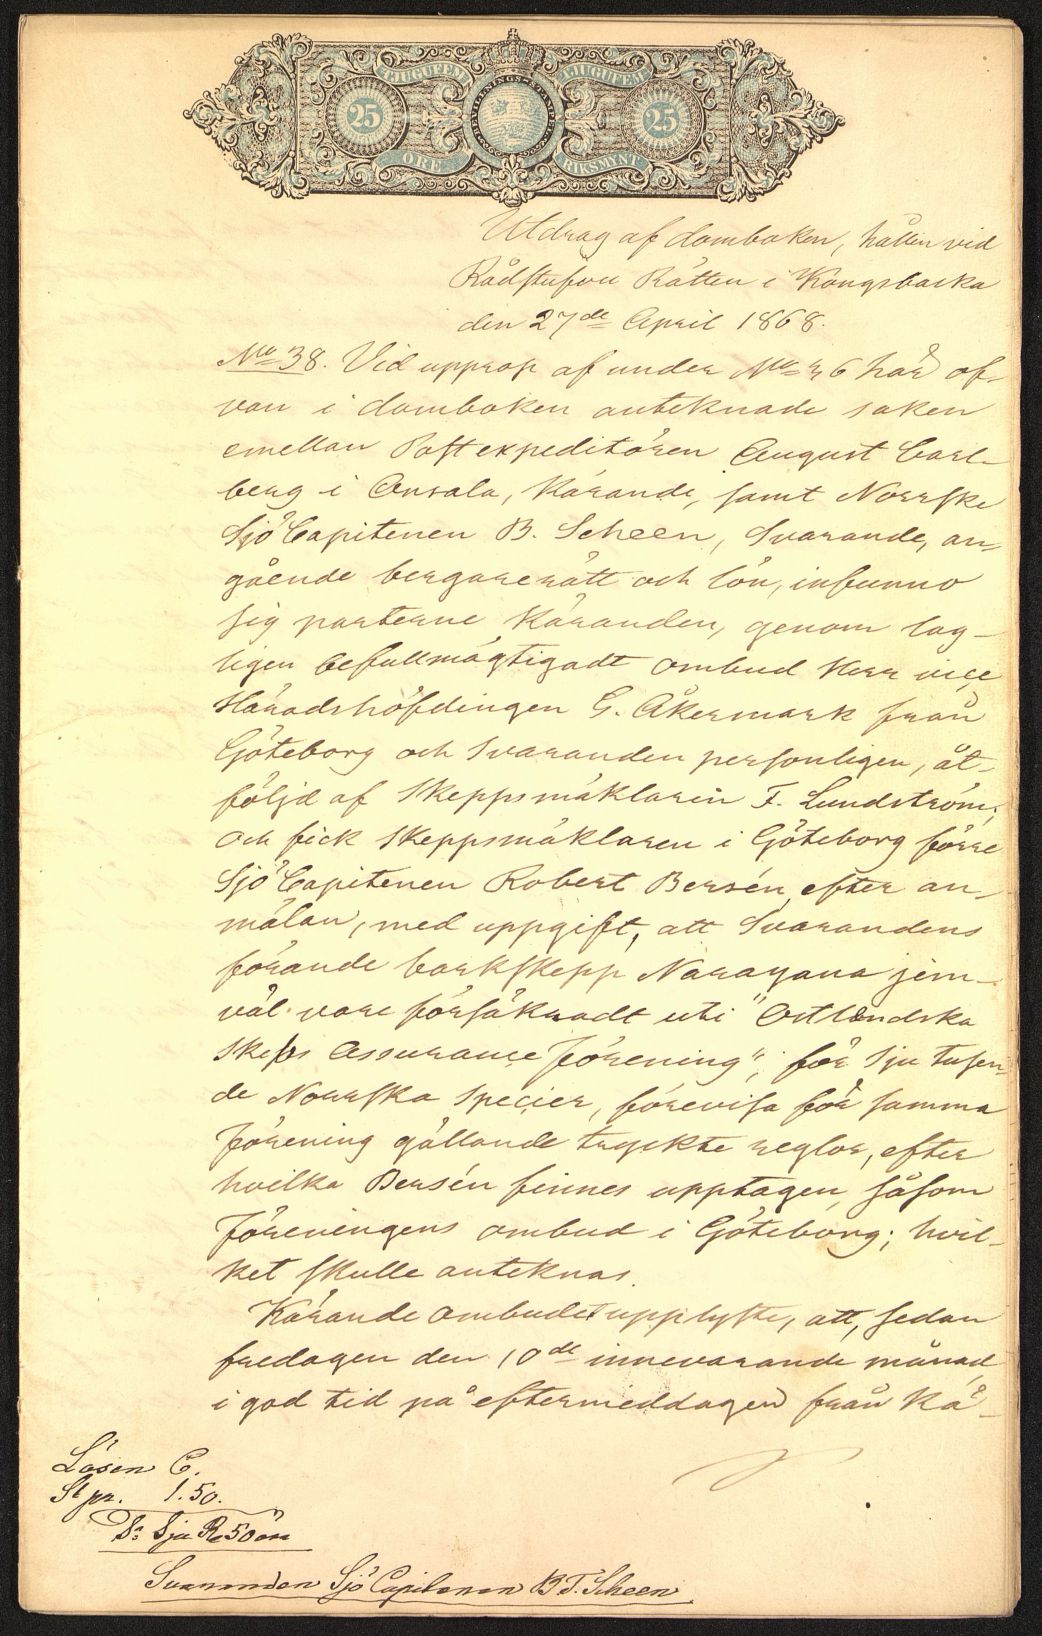 TJUGUFEM TJUGUFEM
25 BEVILLNINGS-STÄMPEL 25
ÖRE RIKSMYNT
Utdrag af domboken, hållen vid
Rådstufvu Rätten i Kongsbacka
den 27de April 1868.
No 38. Vid upprop af under No 36 här of-
van i domboken antecknade saken
emellan Postexpeditören August Carl-
berg i Onsala, Kärande, samt Norrske
Sjö Capitenen B. Scheen, Svarande, an-
gående bergarerätt och lön, infunno
sig parterne Käranden, genom lag-
ligen befullmägtigadt ombud Herr vice
Häradshöfdingen G. Åkermark från
Göteborg och Svaranden personligen, åt-
följd af Skeppsmäklaren F. Lundström;
och fick Skeppsmäklaren i Göteborg förre
Sjö Capitenen Robert Bersén, efter an-
mälan, med uppgift, att Svarandens
förande barkskepp Narayana jem-
väl vore försäkradt uti "Ostländska
Skeps Assurance Förening", för Sju tusen-
de Norrska Specier, förevisa för samma
Förening gällande tryckte reglor, efter
hvilka Bersén finnes upptagen, såsom
Föreningens ombud i Göteborg; hvil-
ket skulle antecknas.
Kärande ombudet upplyste, att, sedan
fredagen den 10de innevarande månad,
i god tid på eftermeddagen från Kå-
Lösen 6.
St pr. 1.50.
S:a Sju R 50 öre
Svaranden Sjö Capitenen B. T. Scheen